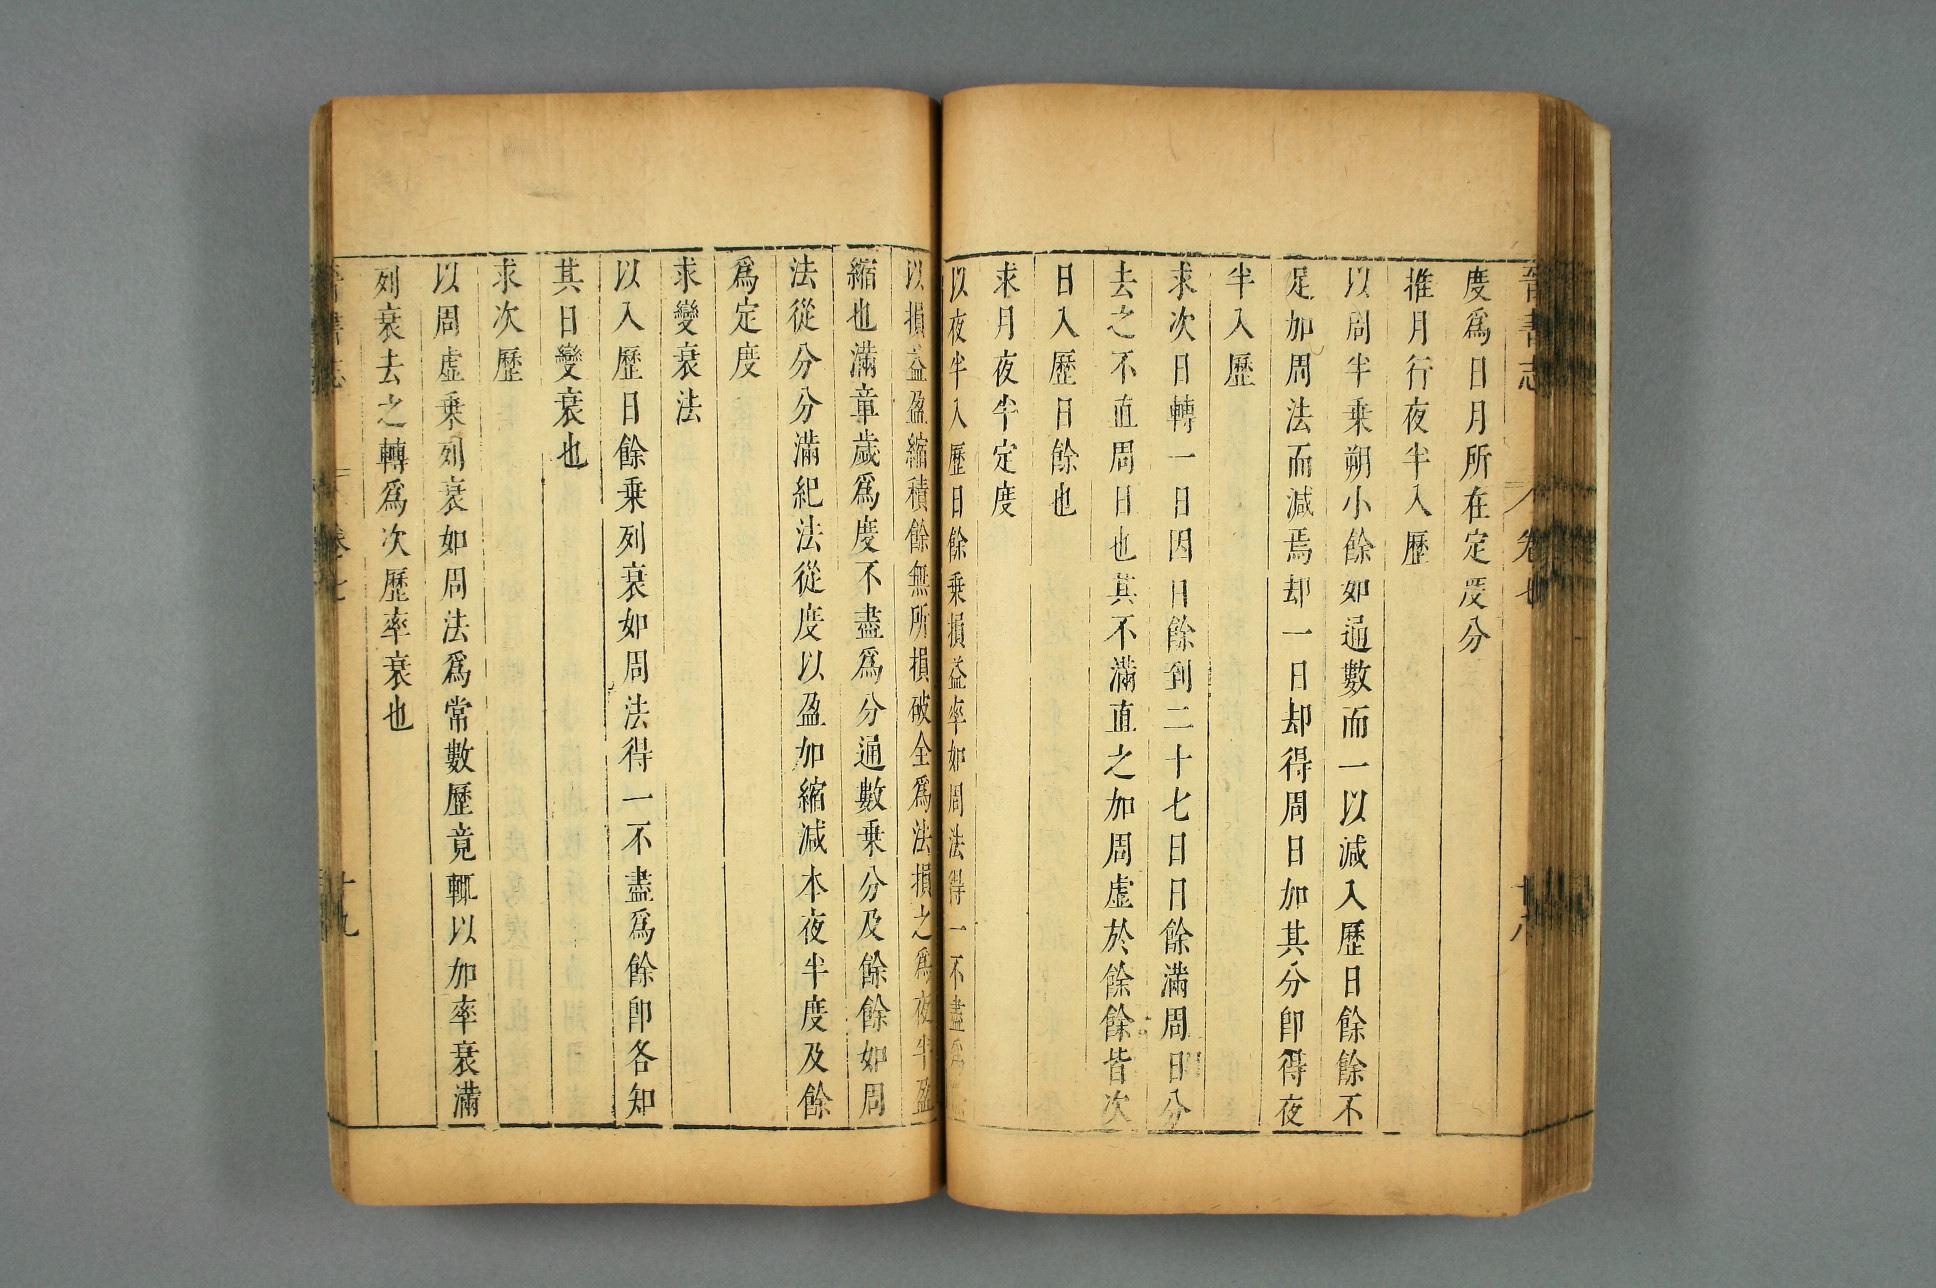 晉書志 卷七 十八
度爲日月所在定度分
推月行夜半入歷
以周半乘朔小餘如通數而一以減入歷日餘餘不
足加周法而減焉却一日却得周日加其分卽得夜
半入歷
求次日轉一日因日餘到二十七日日餘滿周日分
去之不直周日也其不滿直之加周虛於餘餘皆次
日入歷日餘也
求月夜半定度
以夜半入歷日餘乘損益率如周法得一不盡爲
以損益盈縮積餘無所損破全爲法損之爲夜半盈
縮也滿章歲爲度不盡爲分通數乘分及餘餘如周
法從分分滿紀法從度以盈加縮減本夜半度及餘
爲定度
求變衰法
以入歷日餘乘列衰如周法得一不盡爲餘卽各知
其日變衰也
求次歷
以周虛乘列衰如周法爲常數歷竟輒以加率衰滿
列衰去之轉爲次歷率衰也
書志 卷七 十九